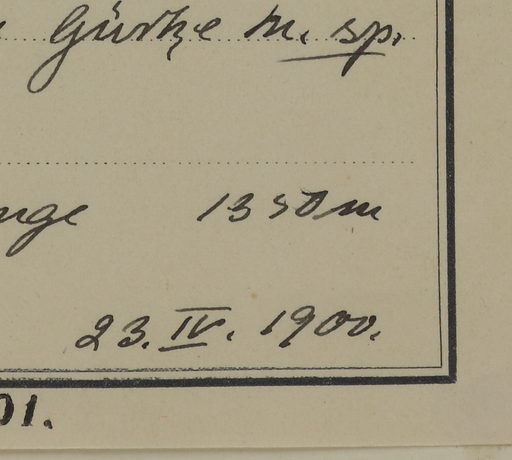 Gürke n. sp.
nge 1350m
23. IV. 1900.
01.